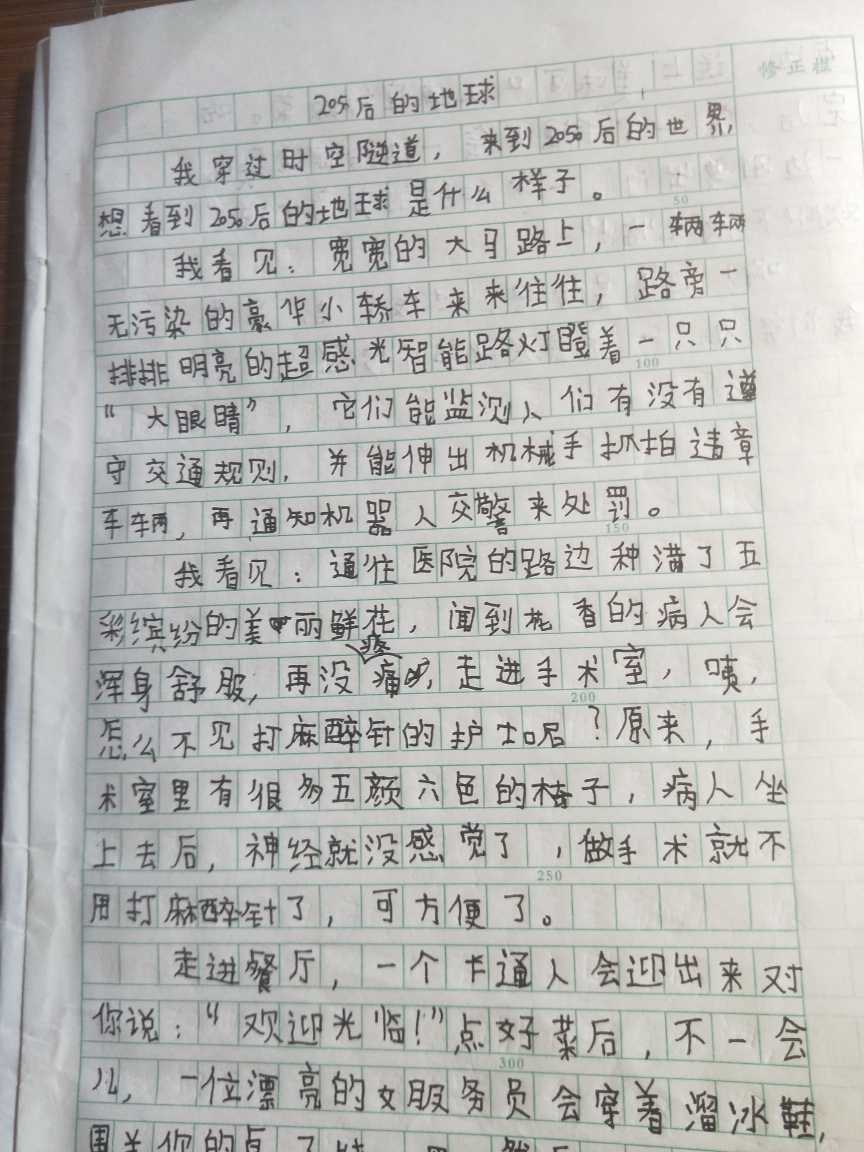 修正栏
205后的地球
我穿过时空隧道，来到2050后的世界，
想看到2050后的地球是什么样子。
50
我看见：宽宽的大马路上，一辆辆
无污染的豪华小轿车来来往往，路旁一
排排明亮的超感光智能路灯瞪着一只只
100
“大眼睛”，它们能监测人们有没有遵
守交通规则，并能伸出机械手抓拍违章
车辆，再通知机器人交警来处罚。
150
我看见：通往医院的路边种满了五
彩缤纷的美丽鲜花，闻到花香的病人会
浑身舒服，再没疼痛，走进手术室，咦，
200
怎么不见打麻醉针的护士呢？原来，手
术室里有很多五颜六色的椅子，病人坐
上去后，神经就没感觉了，做手术就不
250
用打麻醉针了，可方便了。
走进餐厅，一个卡通人会迎出来对
你说：“欢迎光临！”点好菜后，不一会
300
儿，一位漂亮的女服务员会穿着溜冰鞋，
围着你的